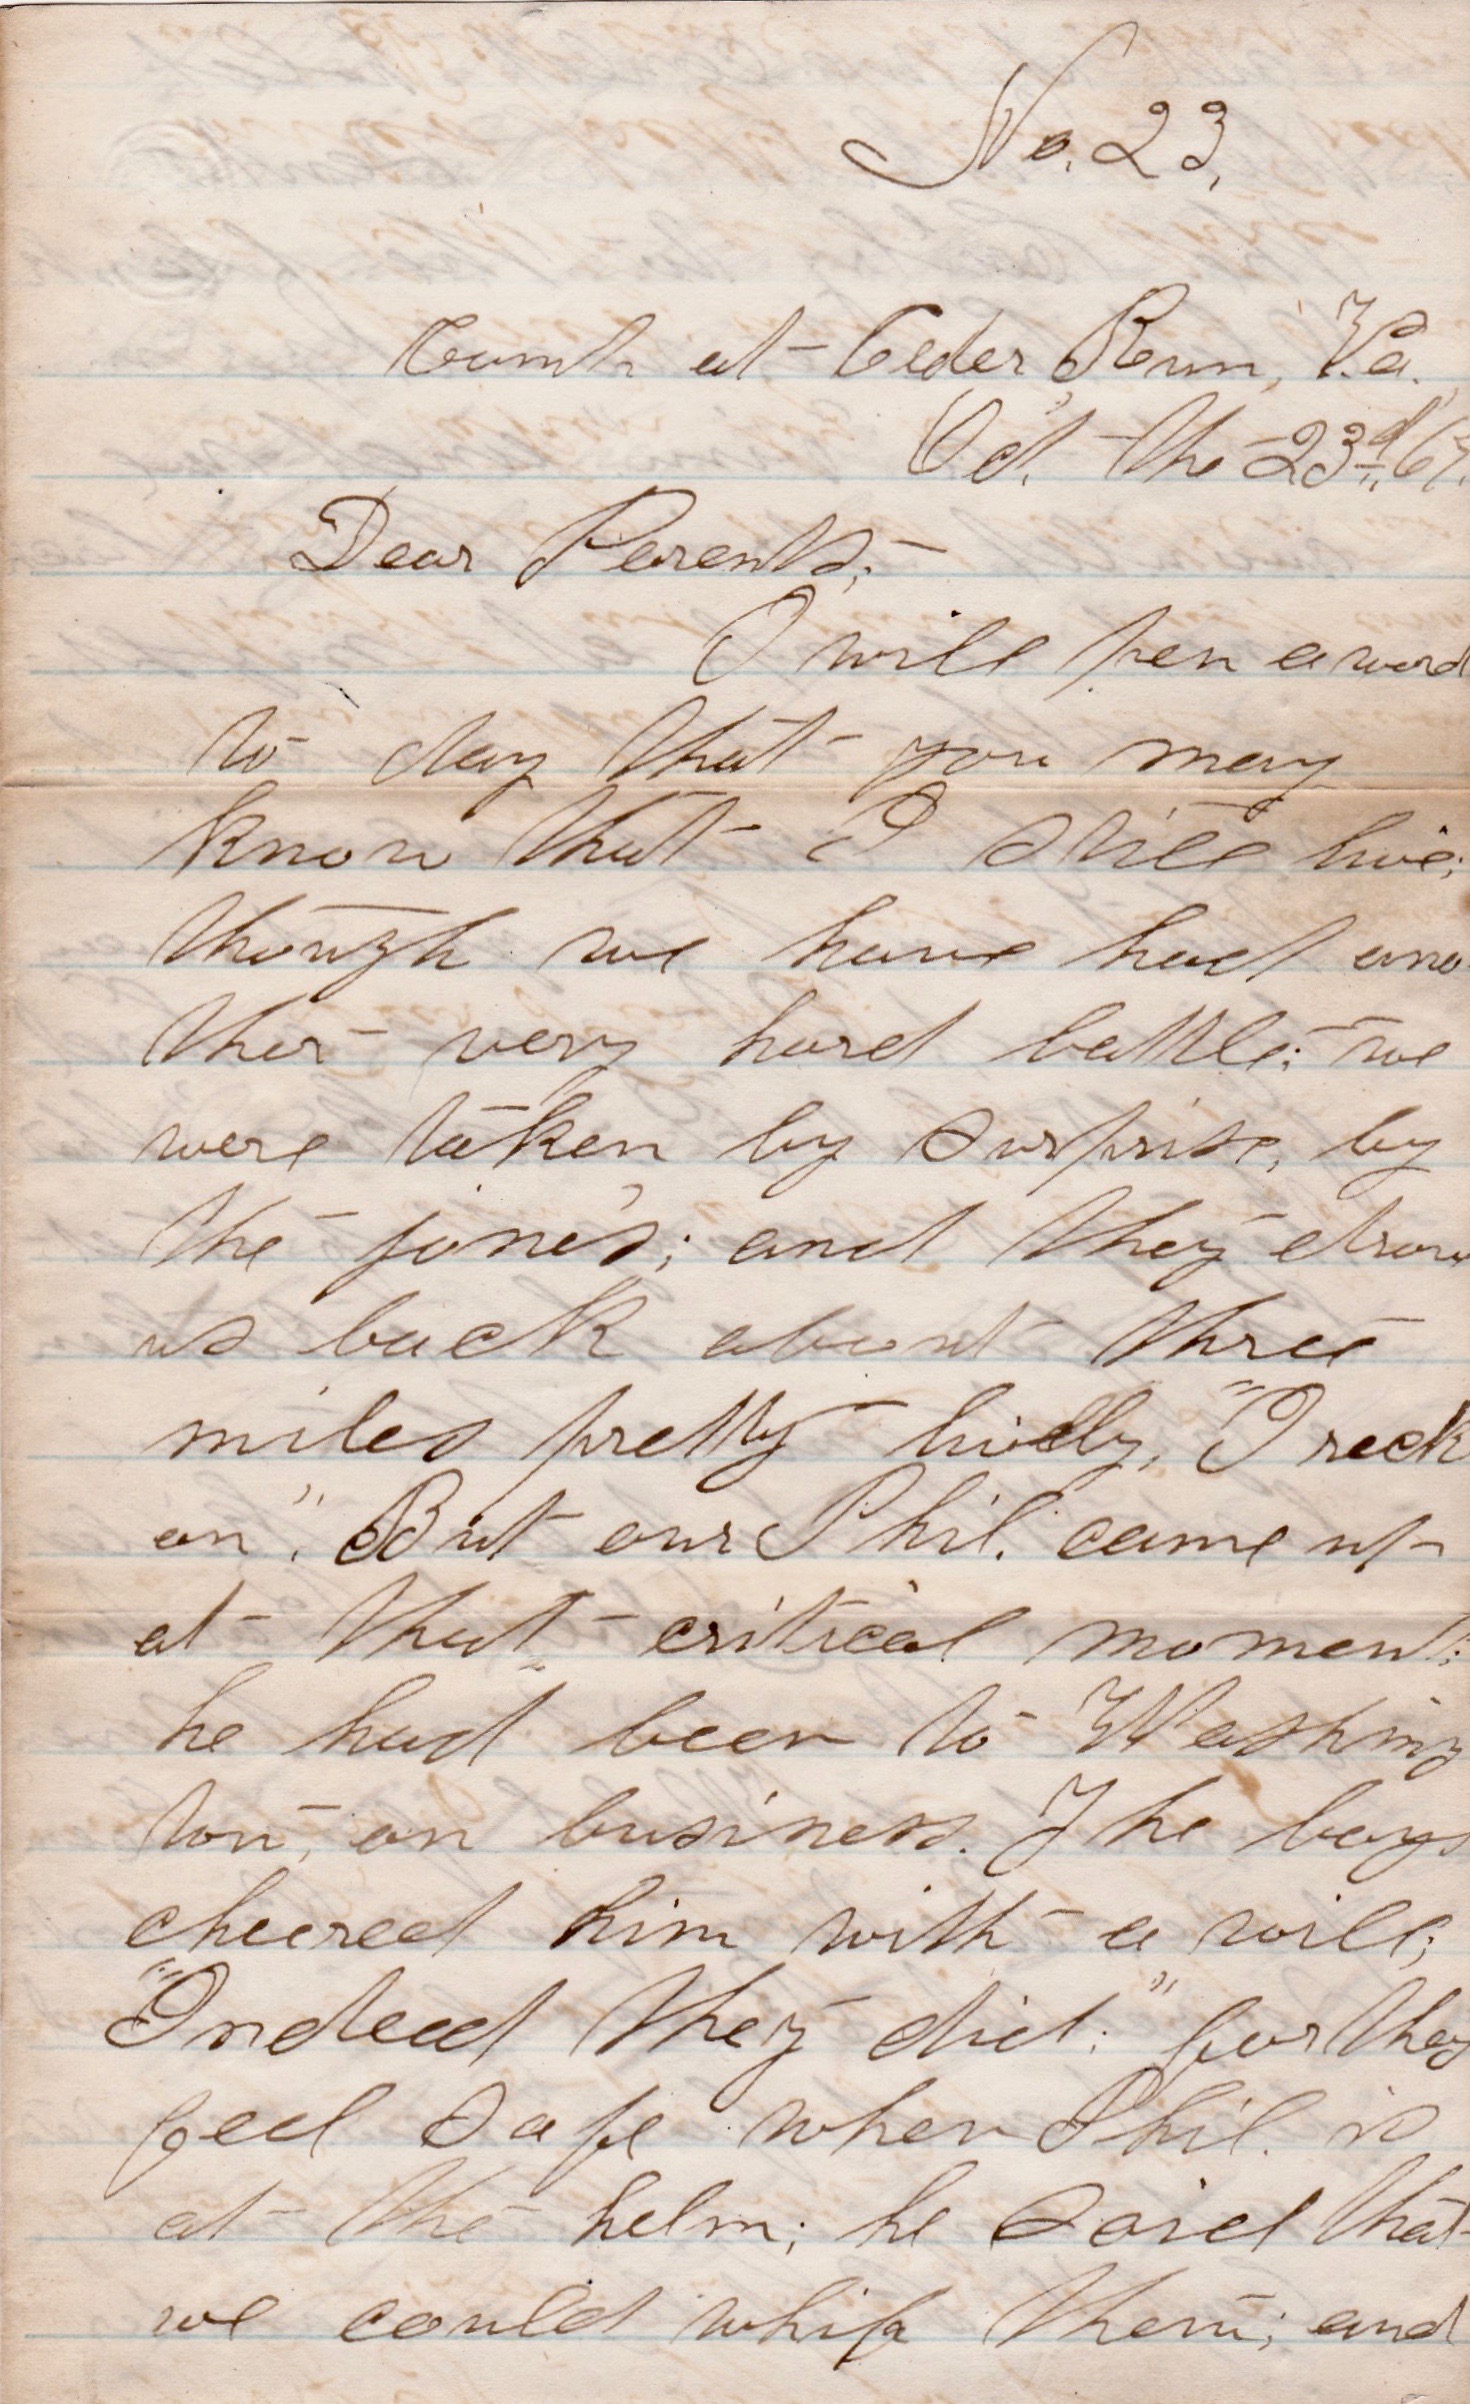 No. 23,
Camp at Ceder Run, Va.,
Oct. the 23d, 64.
Dear Parents;—
I will pen a word
to day that you may
know that I still live;
though we have had ano
ther very hard battle; we
were taken by surprise, by
the jones; and they drove
us back about three
miles pretty lively, "I reck
on". But our Phil. came up
at that critical moment;
he had been to Washing
ton, on business. The boys
cheered him with a will;
"Indeed they did;" for they
feel safe when Phil. is
at the helm; he said that
we could whip them; and